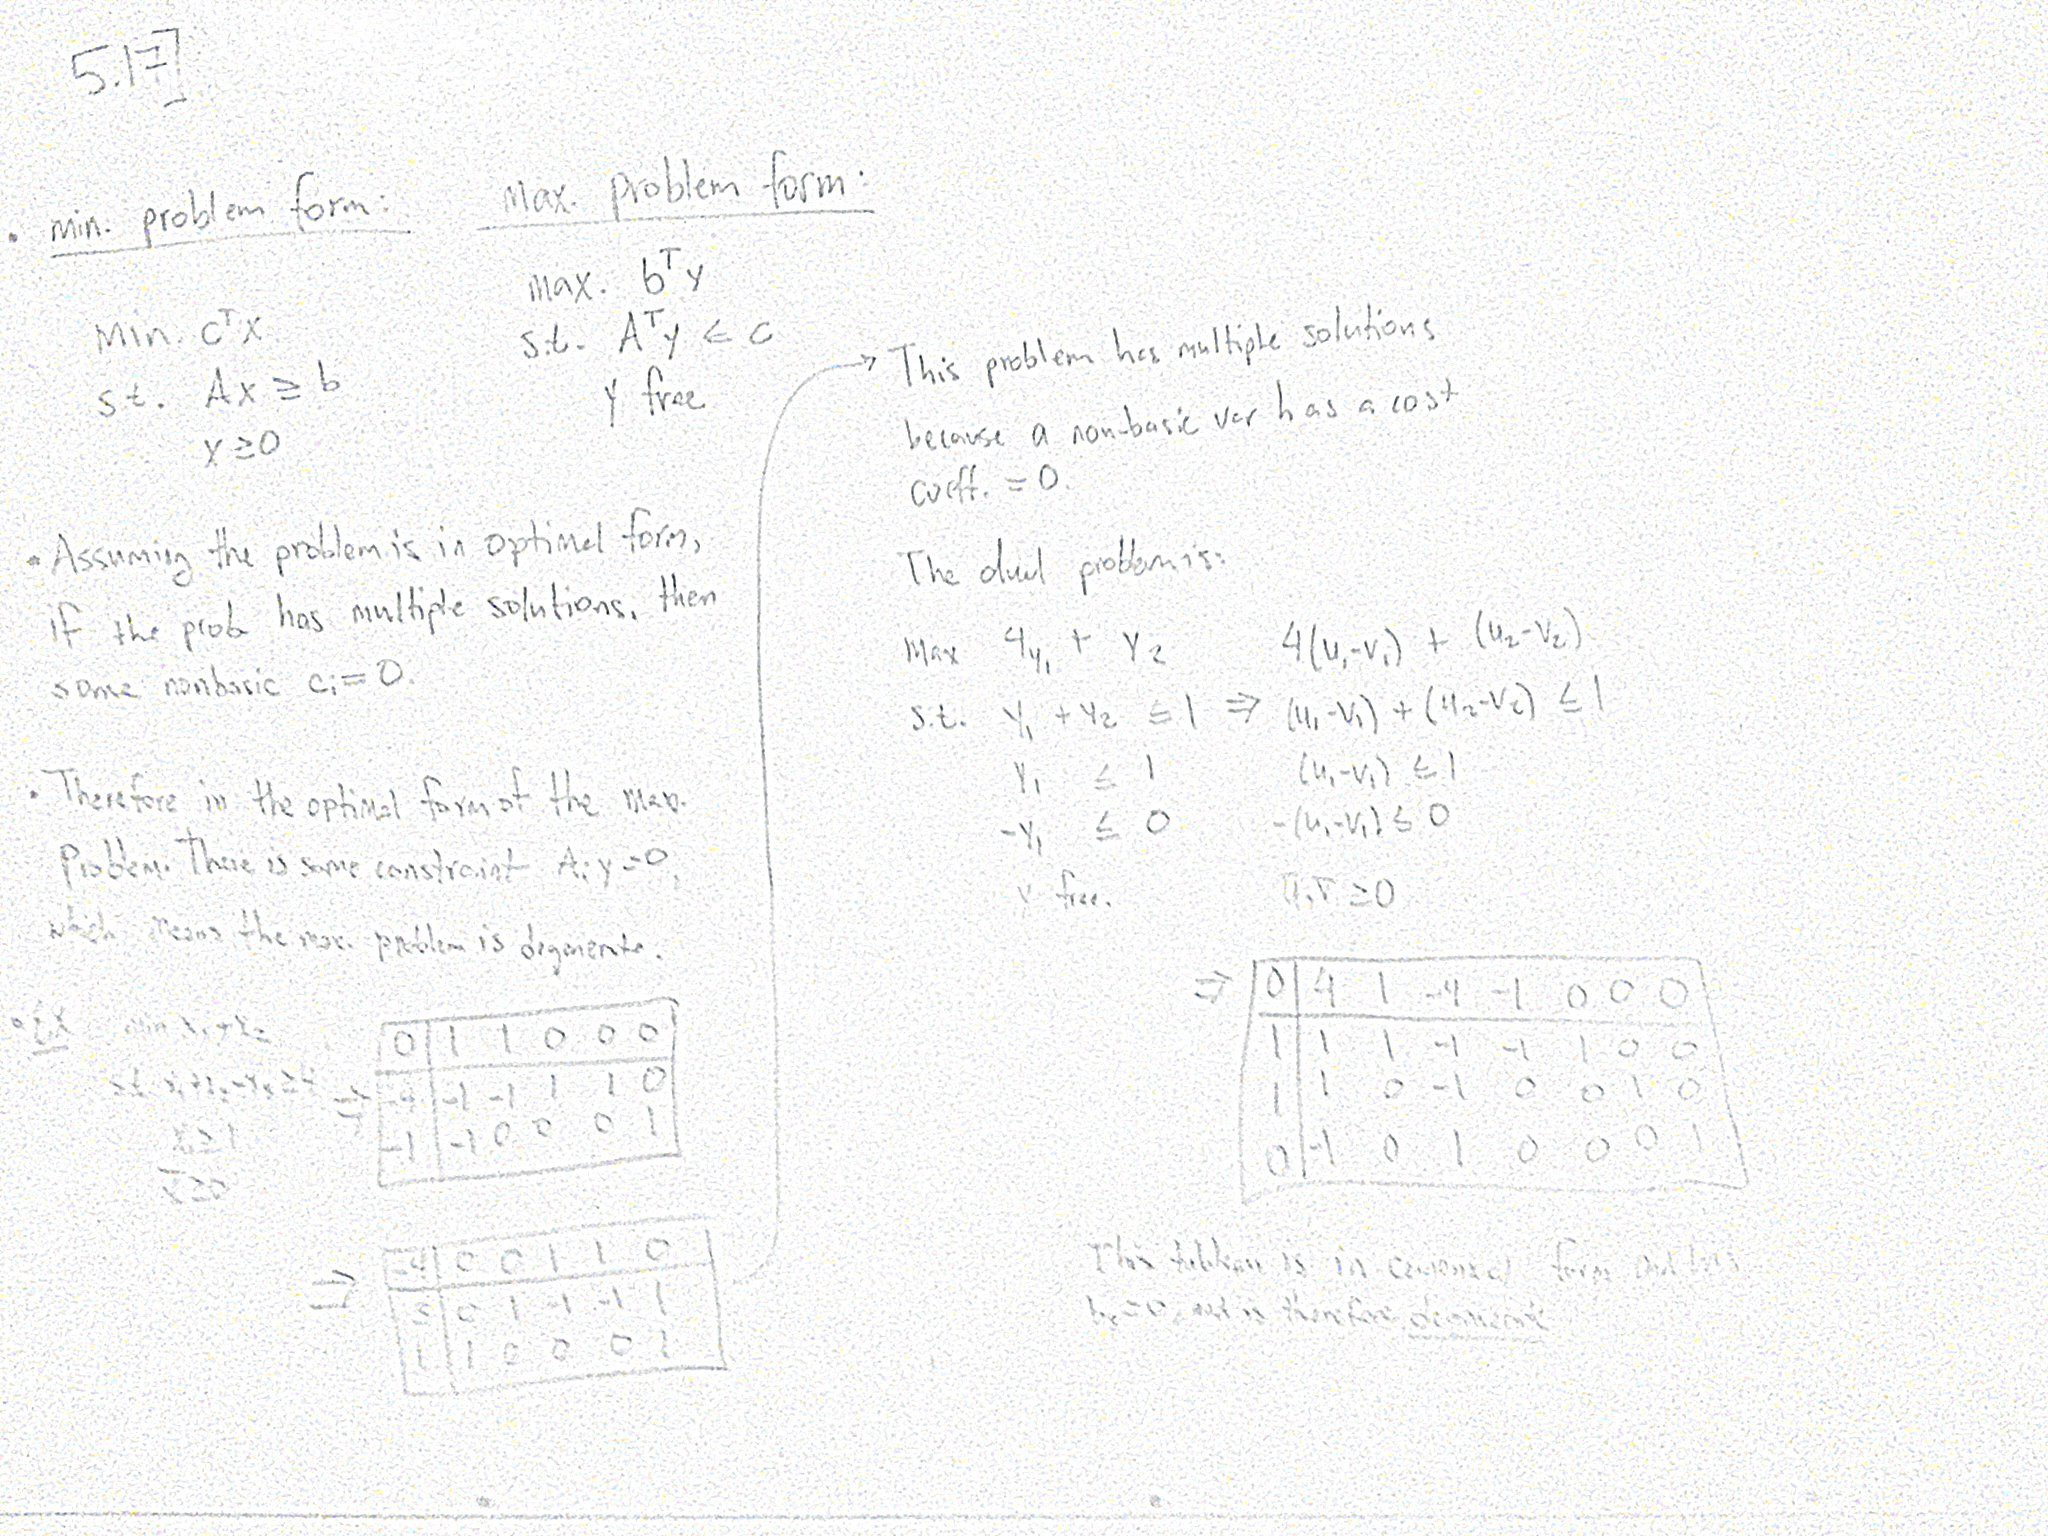 5.17]
• min. problem form:
Min. cᵀx
s.t. Ax ≥ b
x ≥ 0
Max. problem form:
Max. bᵀy
s.t. Aᵀy ≤ c
y free
• Assuming the problem is in optimal form,
if the prob has multiple solutions, then
some nonbasic cᵢ = 0.
• Therefore in the optimal form of the max.
Problem. There is some constraint Aᵢy = 0,
which means the max. problem is degenerate.
• Ex min x₁ + x₂
s.t. x₁ + x₂ - x₃ ≥ 4
x₁ ≥ 1
x ≥ 0
⇒ 0 | 1 1 0 0 0
-4 | -1 -1 1 1 0
-1 | -1 0 0 0 1
⇒ -4 | 0 0 1 1 0
0 1 -1 -1 1
1 | 1 0 0 0 1
→ This problem has multiple solutions
because a non-basic var has a cost
coeff. = 0.
The dual problem is:
Max 4y₁ + y₂ 4(u₁-v₁) + (u₂-v₂)
s.t. y₁ + y₂ ≤ 1 ⇒ (u₁-v₁) + (u₂-v₂) ≤ 1
y₁ ≤ 1 (u₁-v₁) ≤ 1
-y₁ ≤ 0 -(u₁-v₁) ≤ 0
free. ≥ 0
⇒ 0 | 4 1 -4 -1 0 0 0
1 | 1 1 -1 -1 1 0 0
1 | 1 0 -1 0 0 1 0
0 | -1 0 1 0 0 0 1
This tableau is in canonical form and has
= 0, and is therefore degenerate